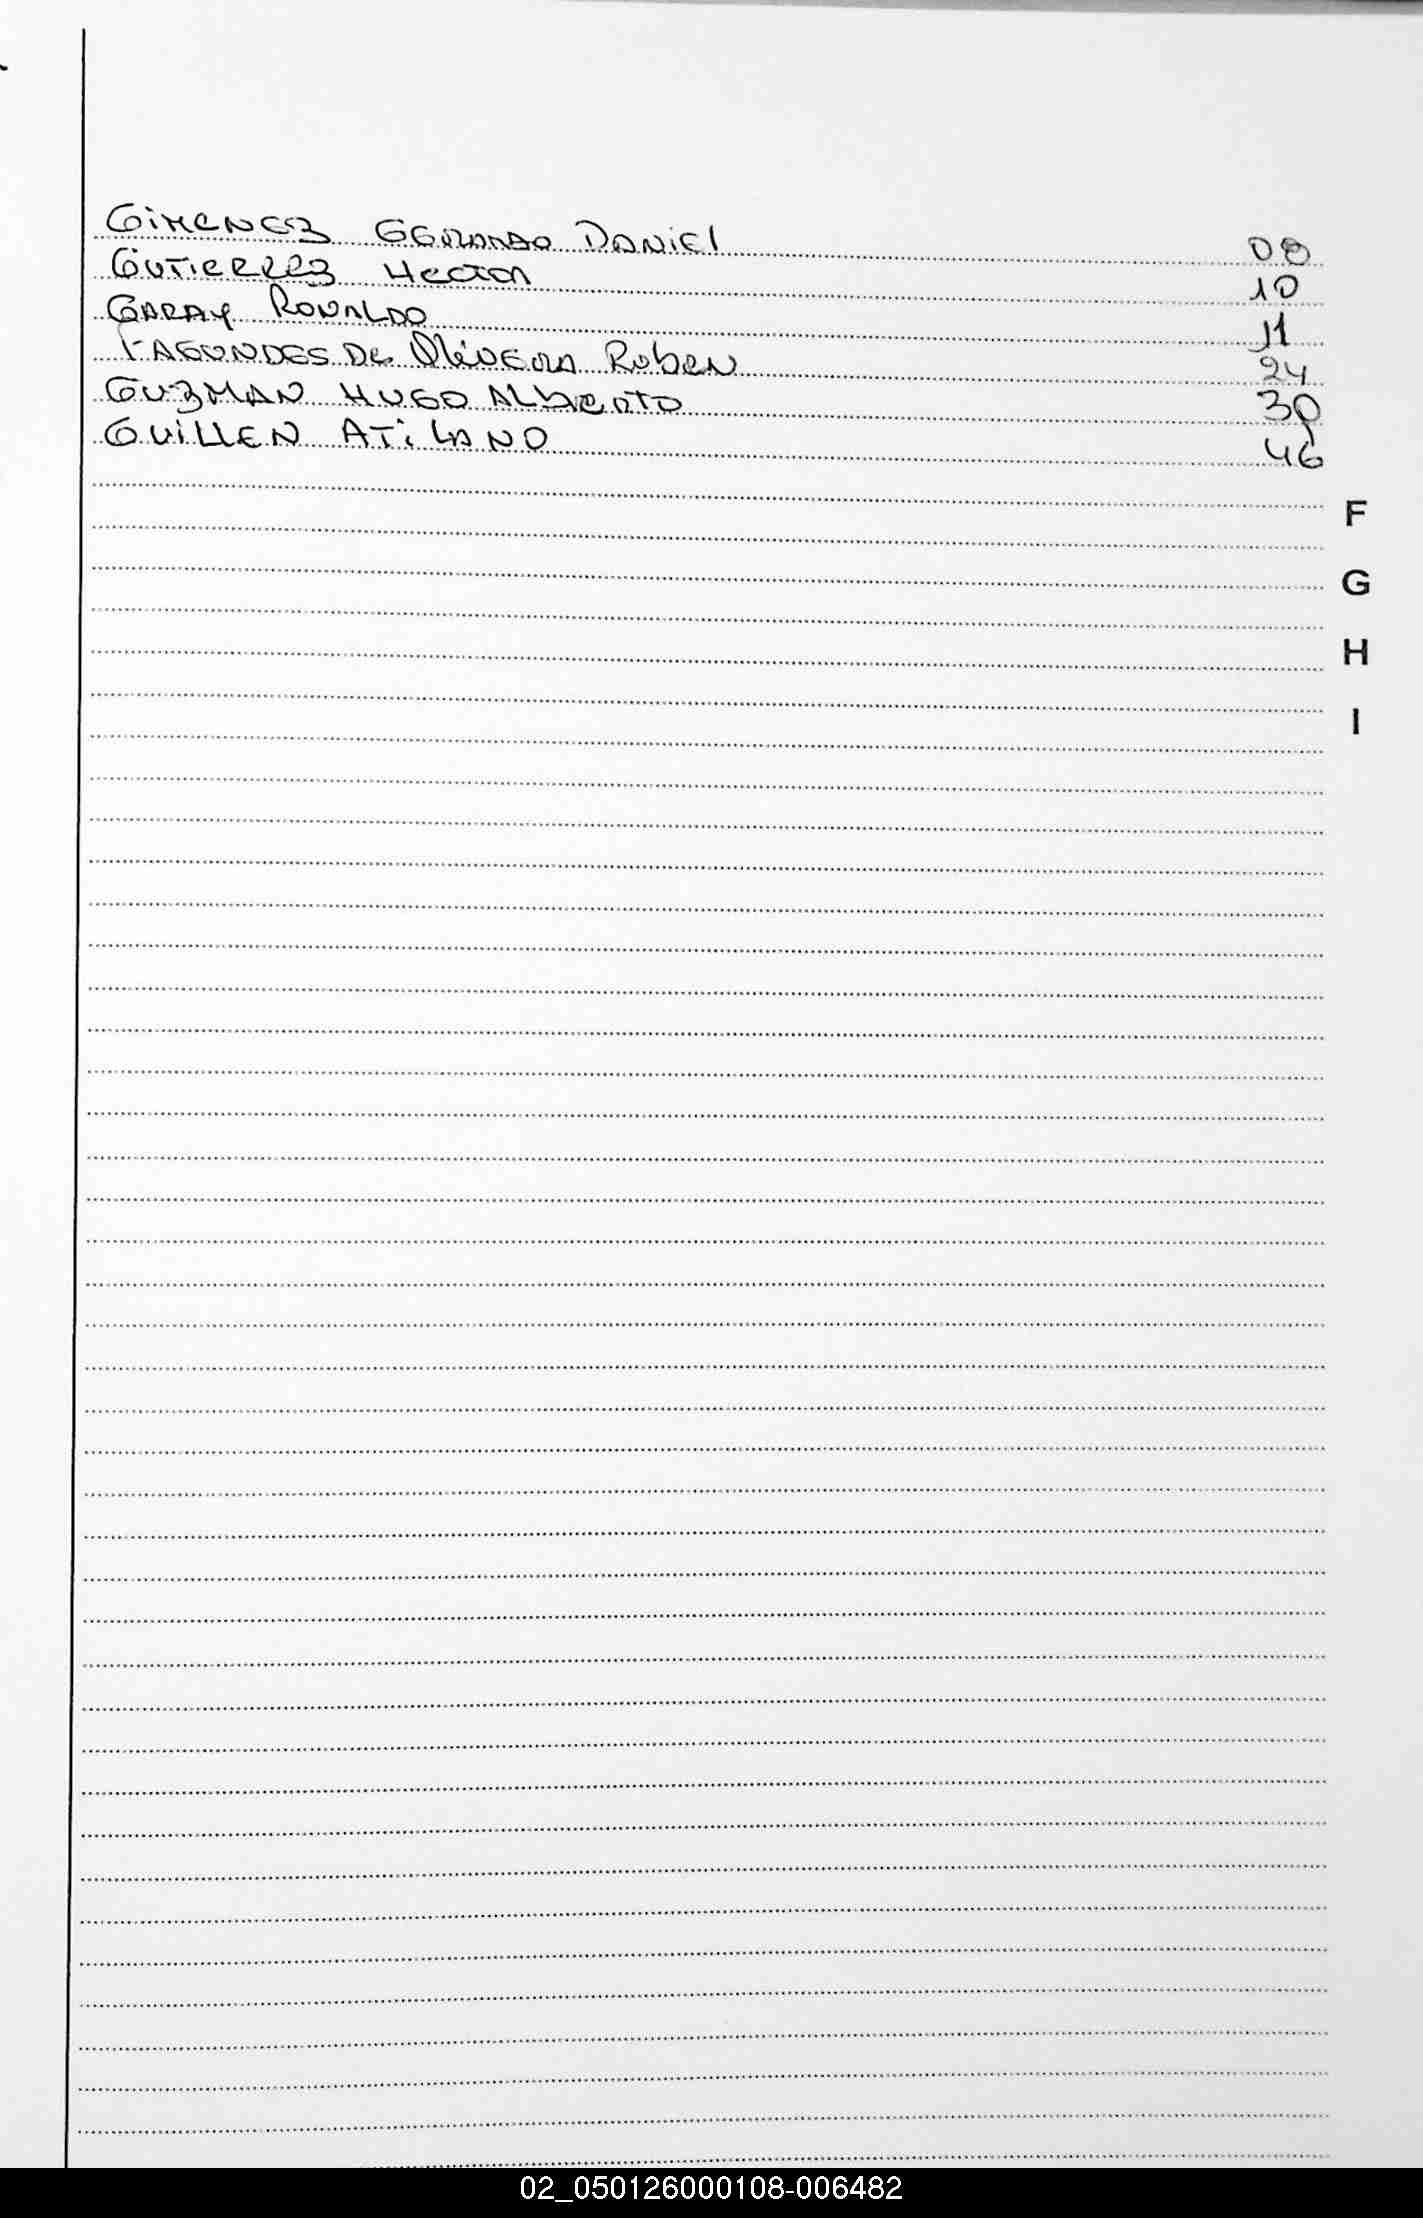 GIMENEZ GERARDO DANIEL 08
GUTIERREZ Hector 10
GARAY RONALDO 11
FAGUNDES De OliVEIRA RubeN 24
GUZMAN HUGO ALbERTO 30
GUILLEN ATiLANO 46
F
G
H
I
02_050126000108-006482